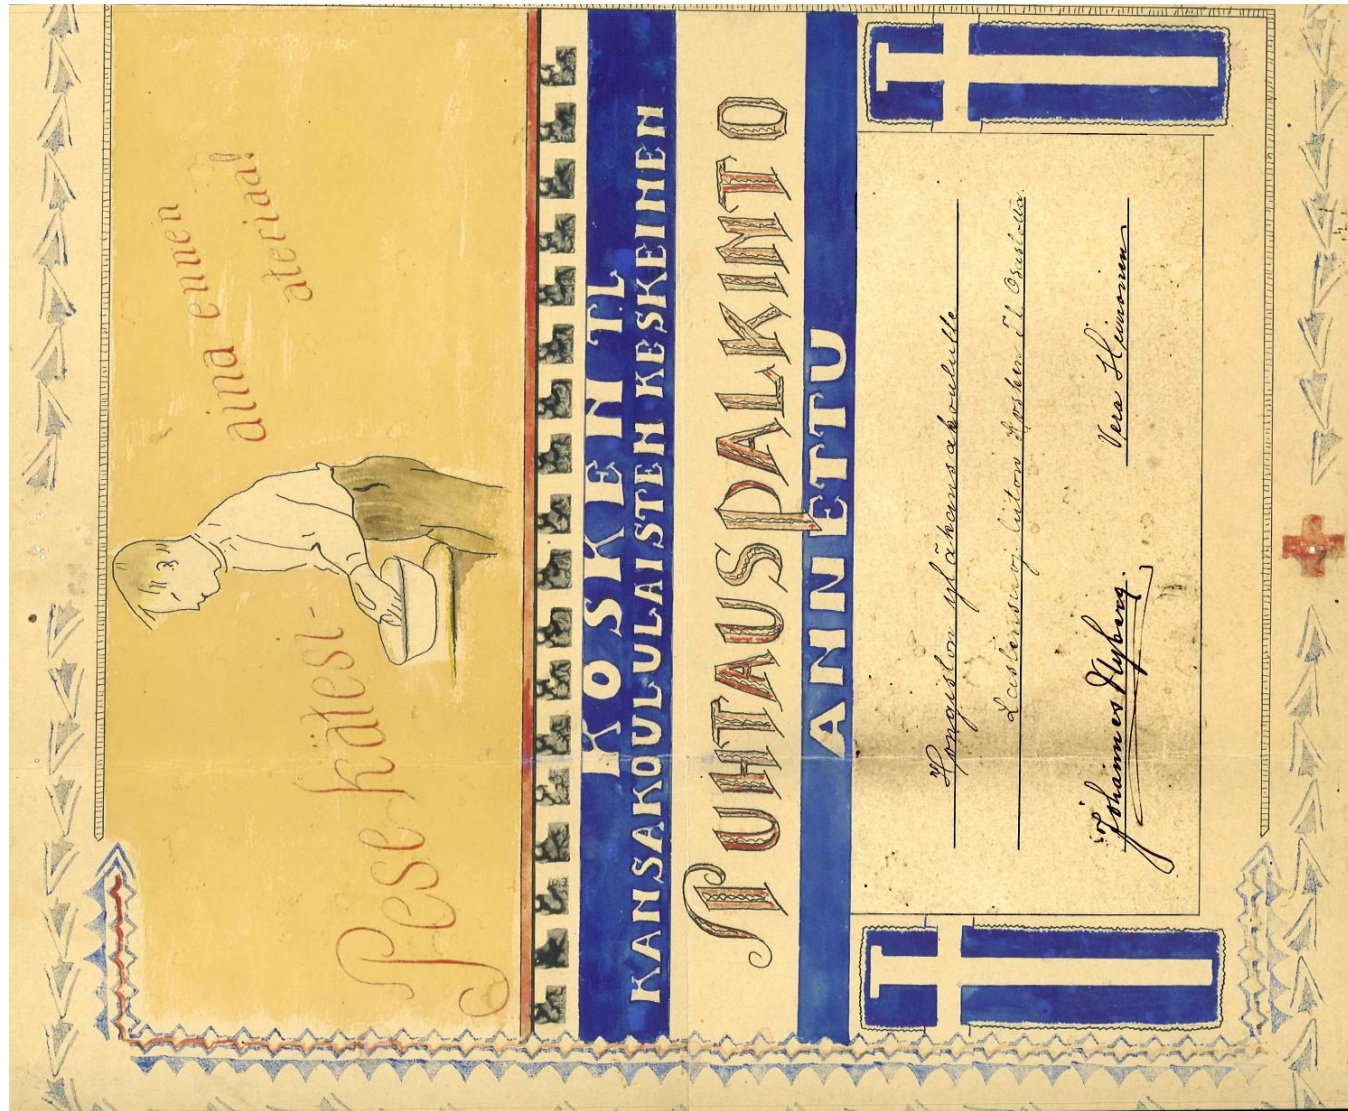 Pese kätesi-
aina ennen
ateriaa!
KOSKEN TL
KANSAKOULULAISTEN KESKEINEN
PUHTAUSPALKINTO
ANNETTU
Hongiston yläkansakoululle
Lastensuoj. liiton Kosken Tl Osastolla.
Johannes Nyberg. Vera Heinonen